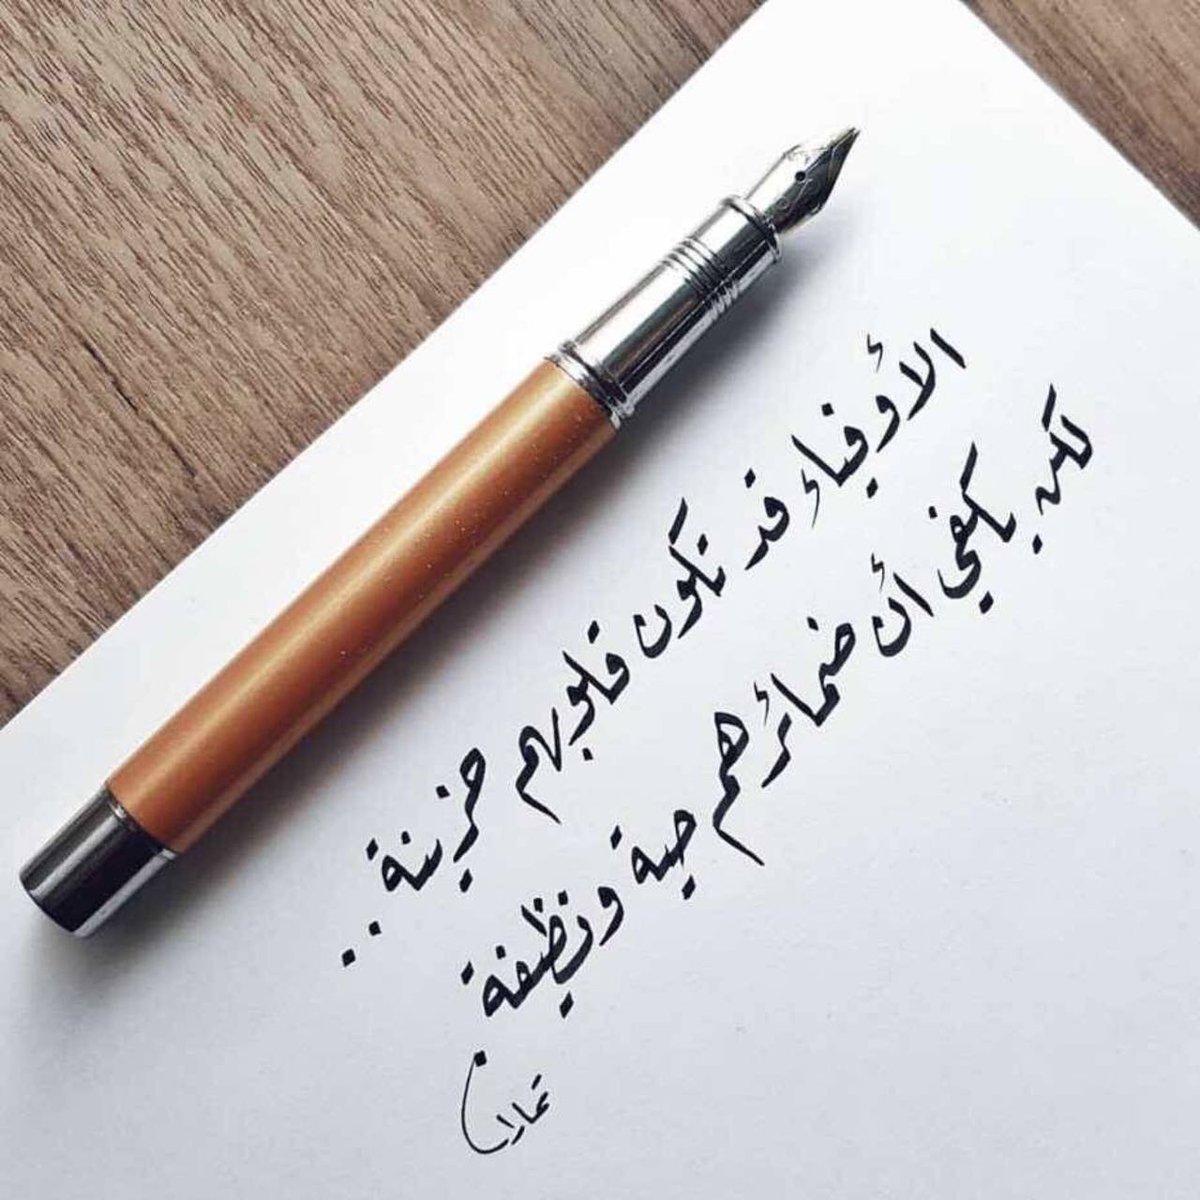 الأوفياء قد تكون قلوبهم حزينة..
لكن يكفي أن ضمائرهم حية ونظيفة